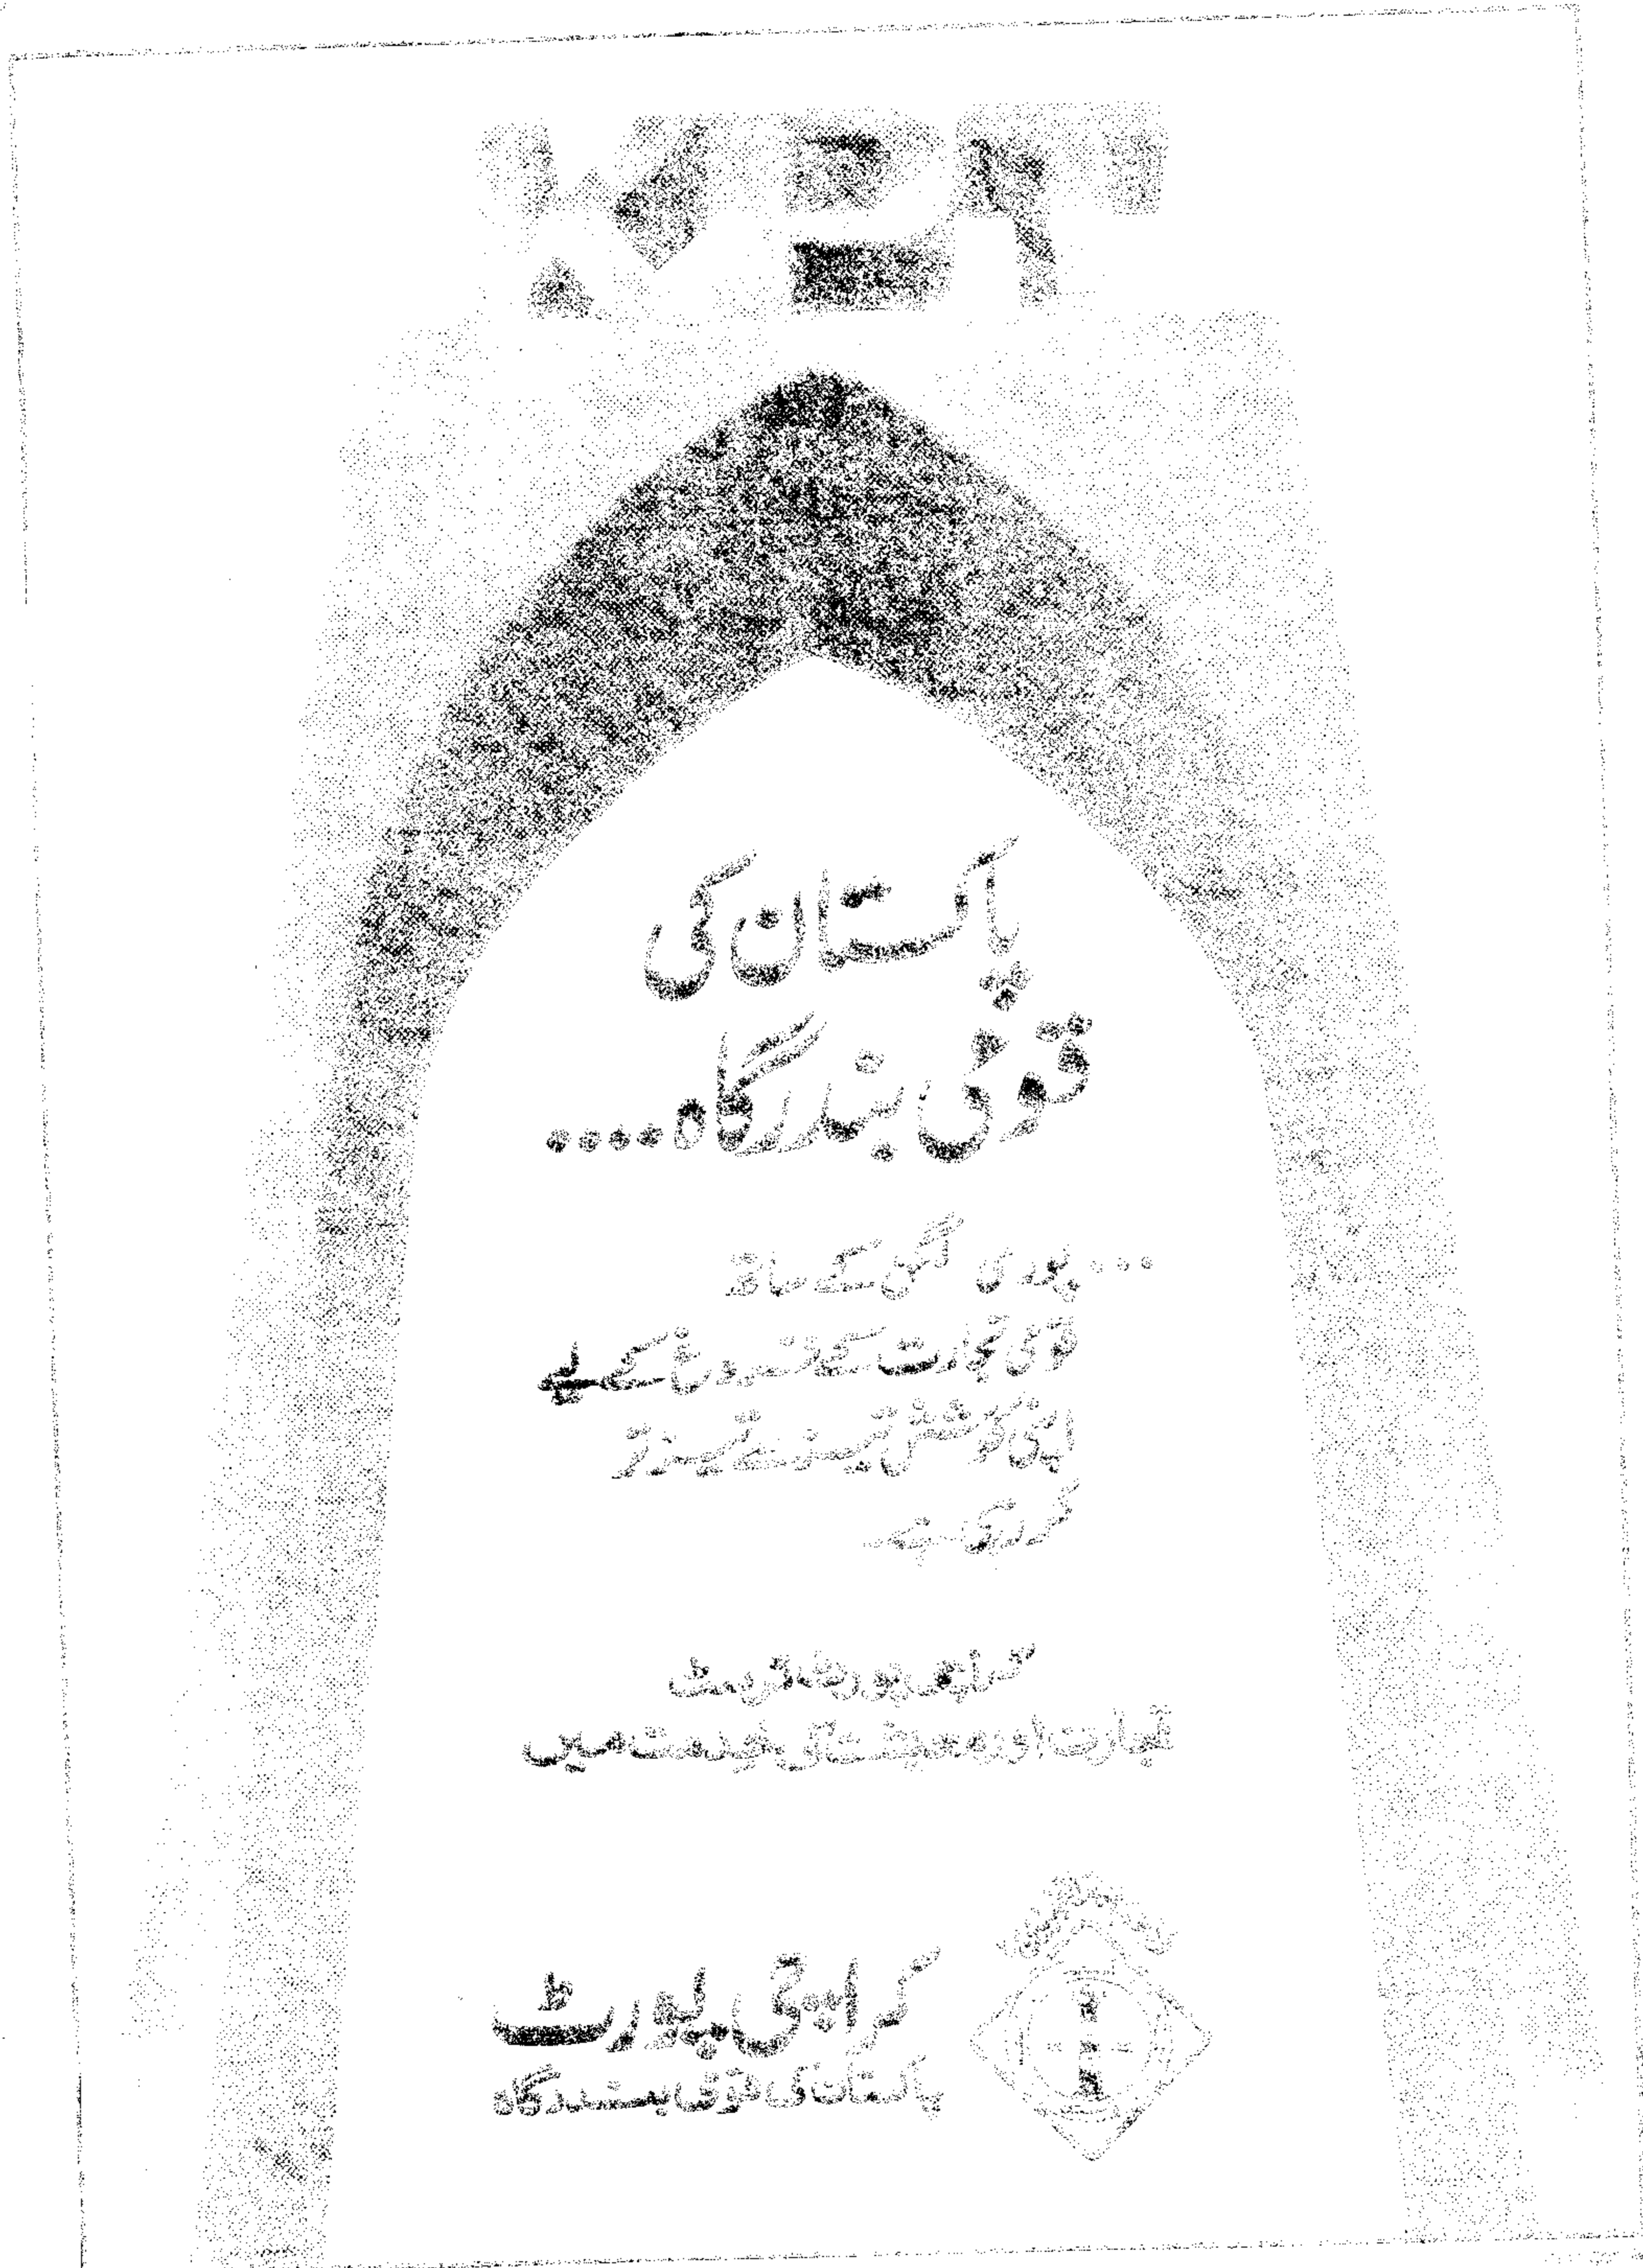 KPT
پاکستان کی
قومی بندرگاہ....
...پوری لگن کے ساتھ
قومی تجارت کے فروغ کے لیے
اپنی کوشش تیز سے تیز تر
کر رہی ہے۔
کراچی پورٹ ٹرسٹ
تجارت اور معیشت کی خدمت میں
کراچی پورٹ
پاکستان کی قومی بندرگاہ